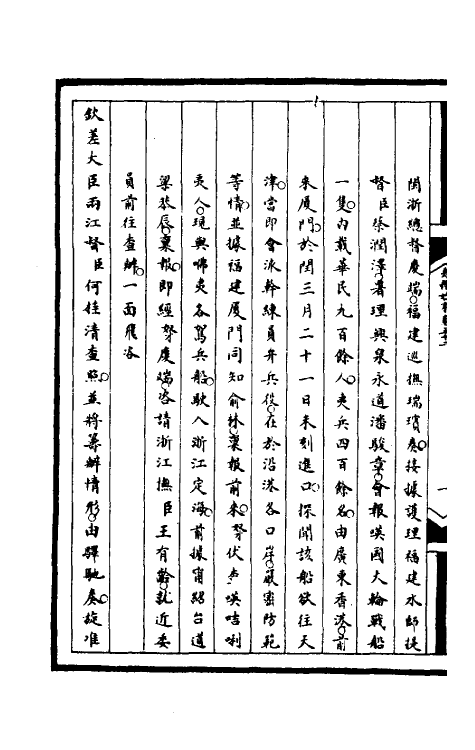 閩浙總督慶端福建巡撫瑞璸奏接據護理福建水師提
督臣蔡潤澤署理興泉永道潘駿章會報㗆國大輪戰船
一隻內載華民九百餘人夷兵四百餘名由廣東香港前
來厦門於閏三月二十一日未刻進口探聞該船欲往天
津當即會派幹練員弁兵役在於沿港各口岸嚴密防範
等情並據福建厦門同知俞林稟報前來努伏查㗆咭唎
夷人現與咈夷各駕兵船駛入浙江定海前據甯紹台道
梁恭辰稟報即經努慶端咨請浙江撫臣王有齡就近委
員前往查辦一面飛咨
欽差大臣兩江督臣何桂清查照並將籌辦情形由驛馳奏旋准